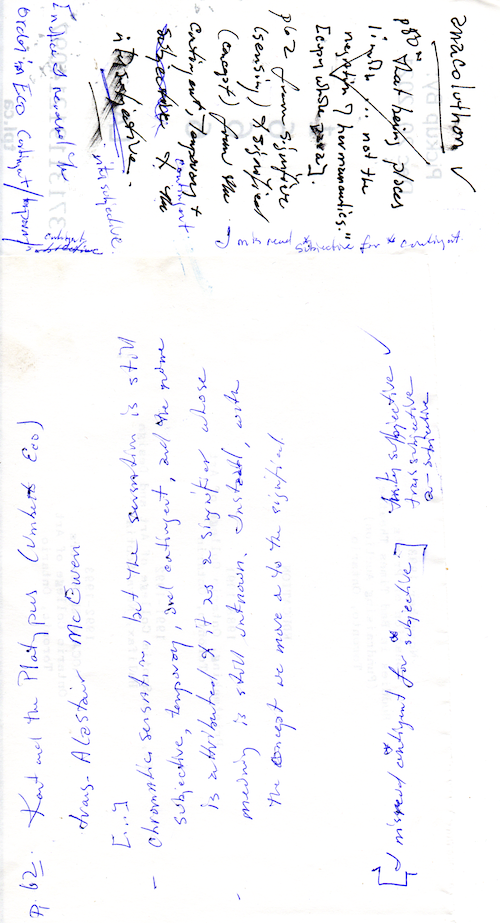 anacoluthon ✓
p80 "that being places
limits ... not the
negation of hermeneutics."
[copy whole para].
p62 from signifier
(sensing) & signified
(concept) from the
contingent, temporary &
contingent
subjective & the
intersubjective.
intersubjective.
I misread subjective for contingent.
contingent
subjective
Pg. 62: Kant and the Platypus (Umberto Eco)
trans. Alastair McEwen
[...]
- Chromatic sensation, but the sensation is still
subjective, temporary, and contingent, and the name
is attributed to it as a signifier whose
meaning is still unknown. Instead, with
- the concept we move on to the signified.
[I misread contingent for subjective.]
intersubjective ✓
trans subjective
a-subjective